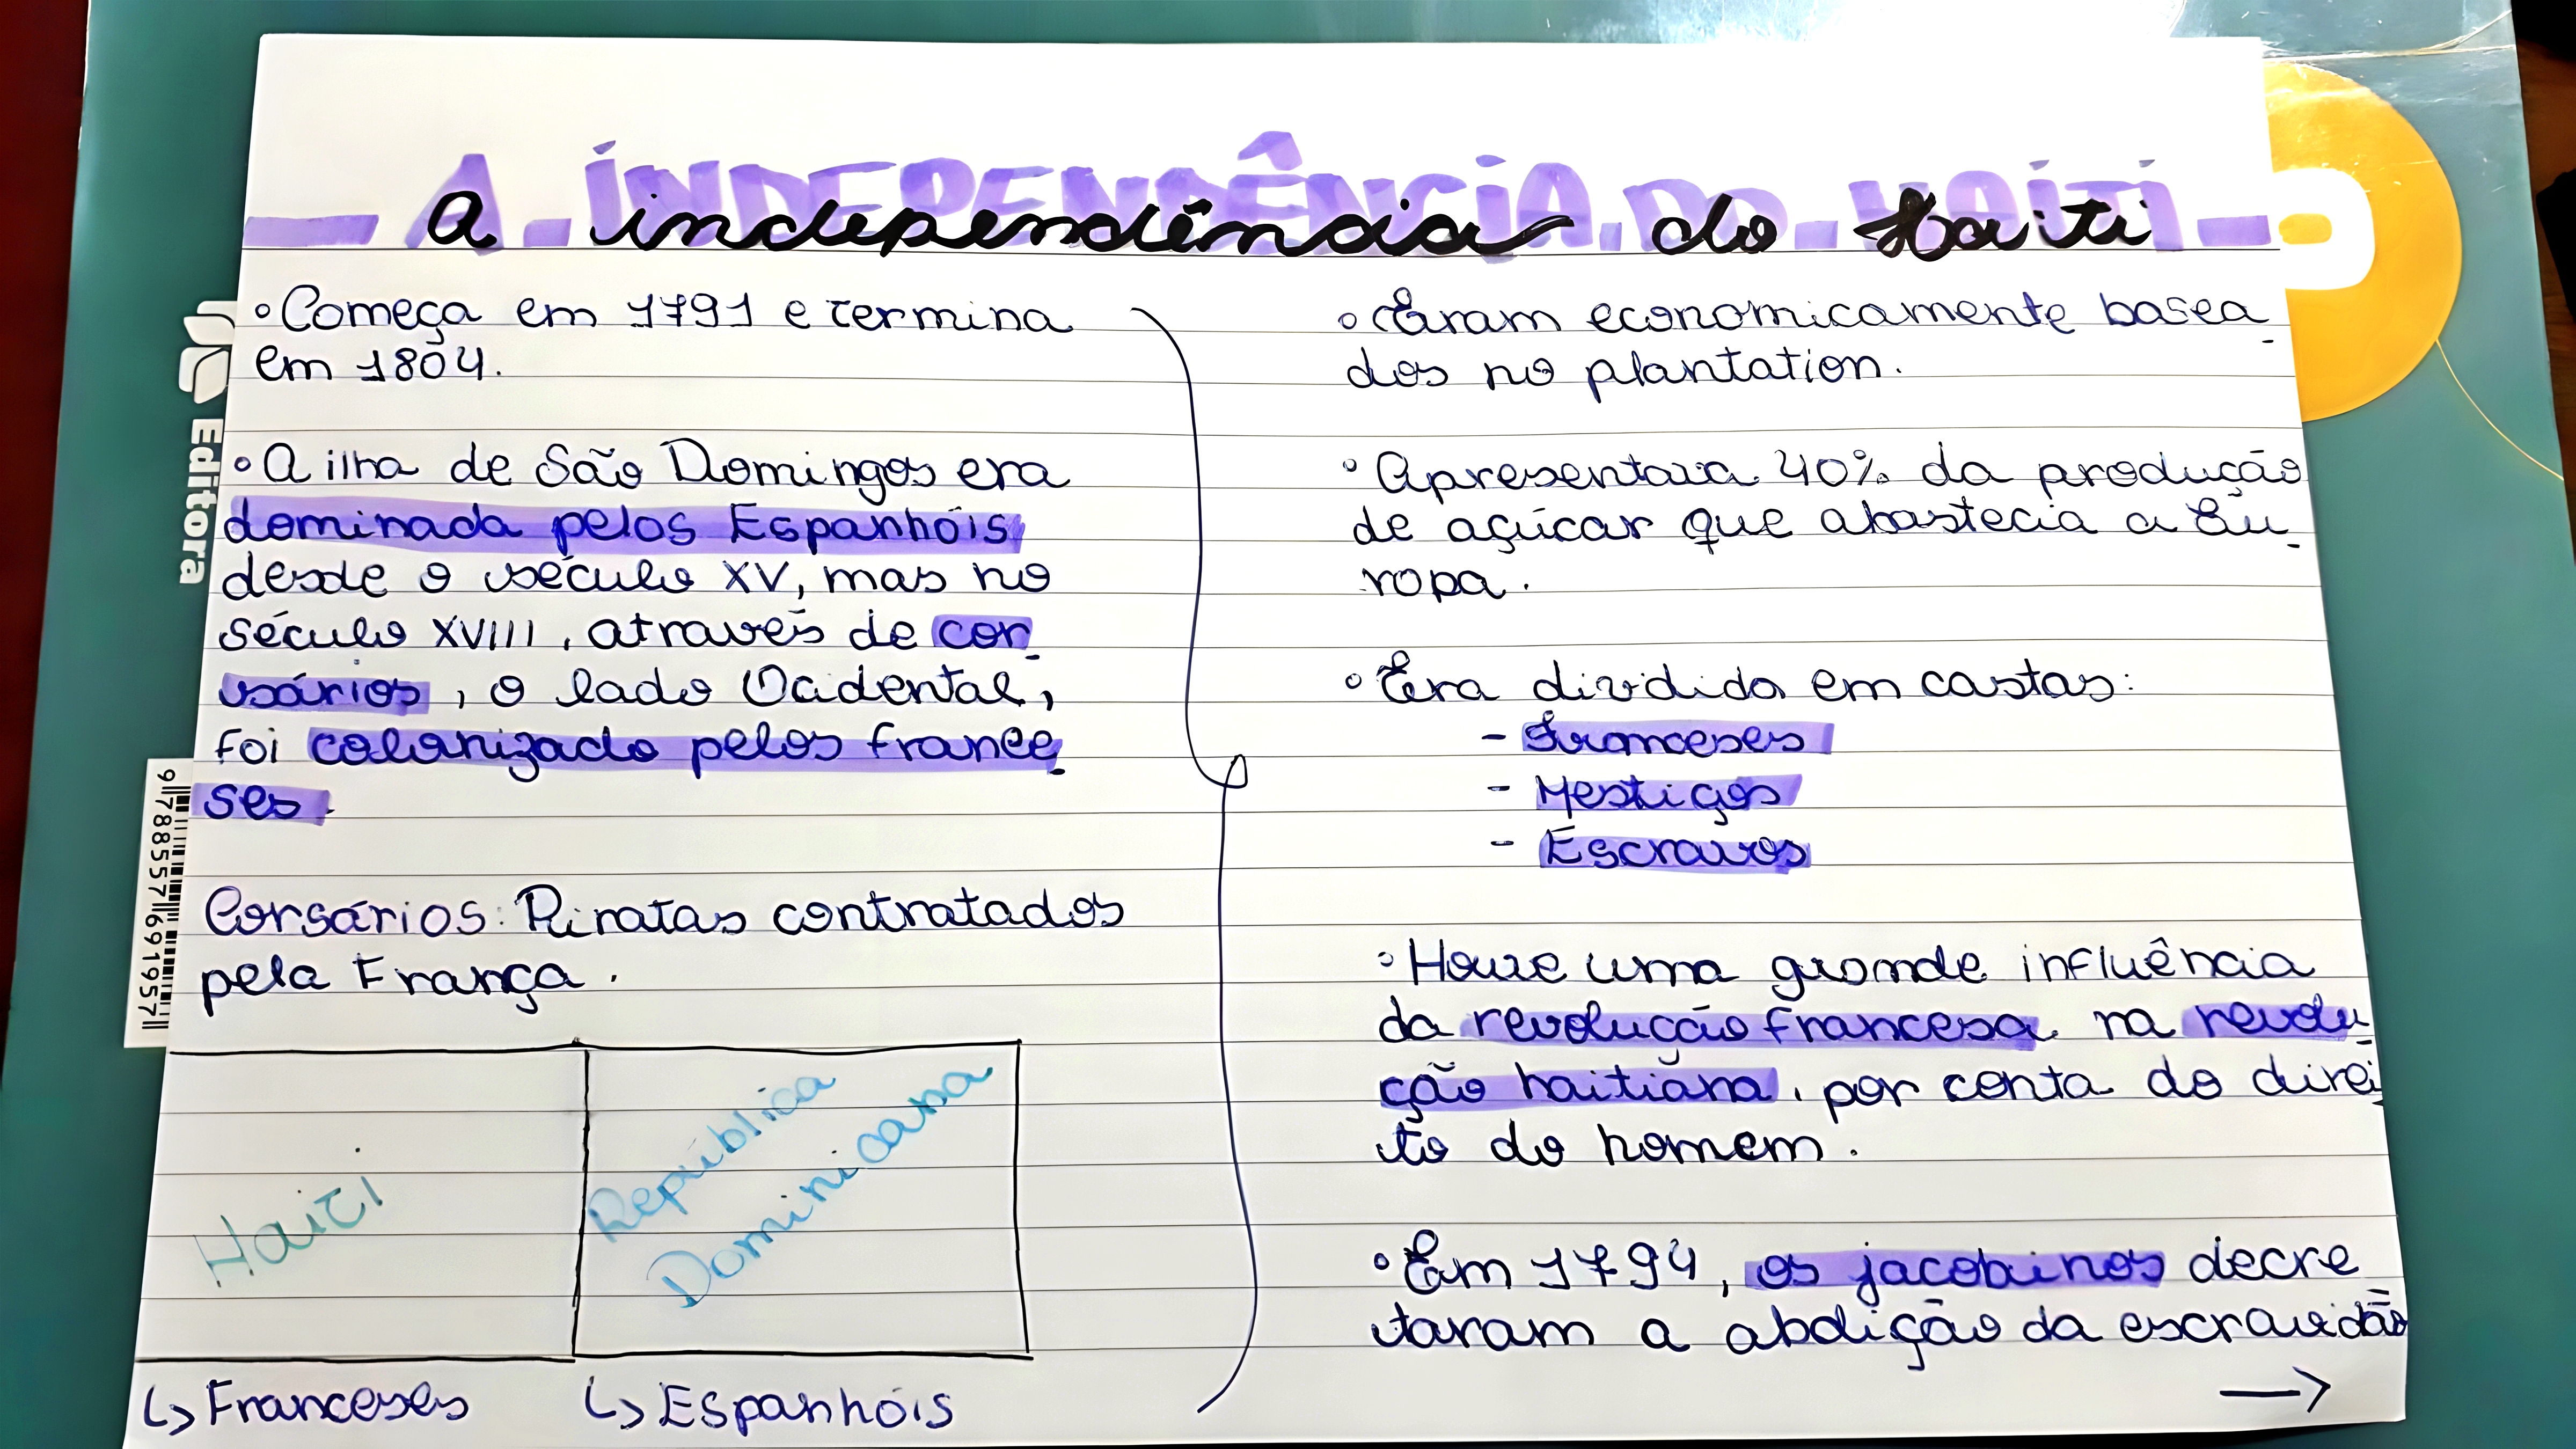 A INDEPENDÊNCIA DO HAITI
a independência do Haiti
◦ Começa em 1791 e termina
em 1804.
◦ A ilha de São Domingos era
dominada pelos Espanhóis
desde o século XV, mas no
século XVIII, através de cor-
sários, o lado Ocidental,
foi colonizado pelos france-
ses.
Corsários: Piratas contratados
pela França.
Haiti
República
Dominicana
↳ Franceses
↳ Espanhóis
◦ Eram economicamente basea-
dos no plantation.
◦ Apresentava 40% da produção
de açúcar que abastecia a Eu-
ropa.
◦ Era dividida em castas:
- Franceses
- Mestiços
- Escravos
◦ Houve uma grande influência
da revolução francesa na revolu-
ção haitiana, por conta do direi-
to do homem.
◦ Em 1794, os jacobinos decre
taram a abolição da escravidão
→
Editora
9 788557 691957